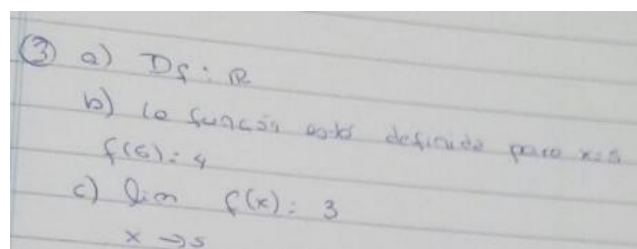 ③ a) Df: ℝ
b) la función está definida para x=5
f(5): 4
c) lim f(x): 3
x→5